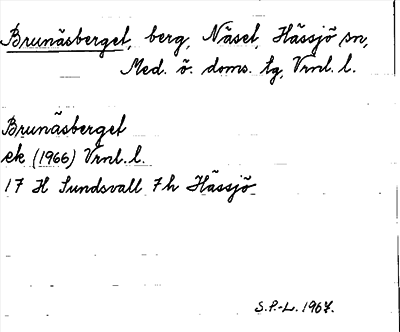 Brunäsberget, berg, Näset, Hässjö sn,
Med. ö. doms. tg, Vrnl. l.
Brunäsberget
ek (1966) Vrnl. l.
17 H Sundsvall 7h Hässjö
S.P.-L. 1967.